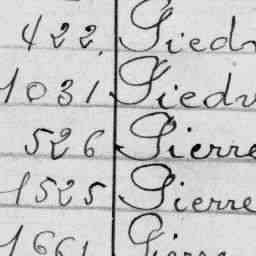 422. Piedr
1031 Piedr
526 Pierre
1525 Pierre
1661 Pierre